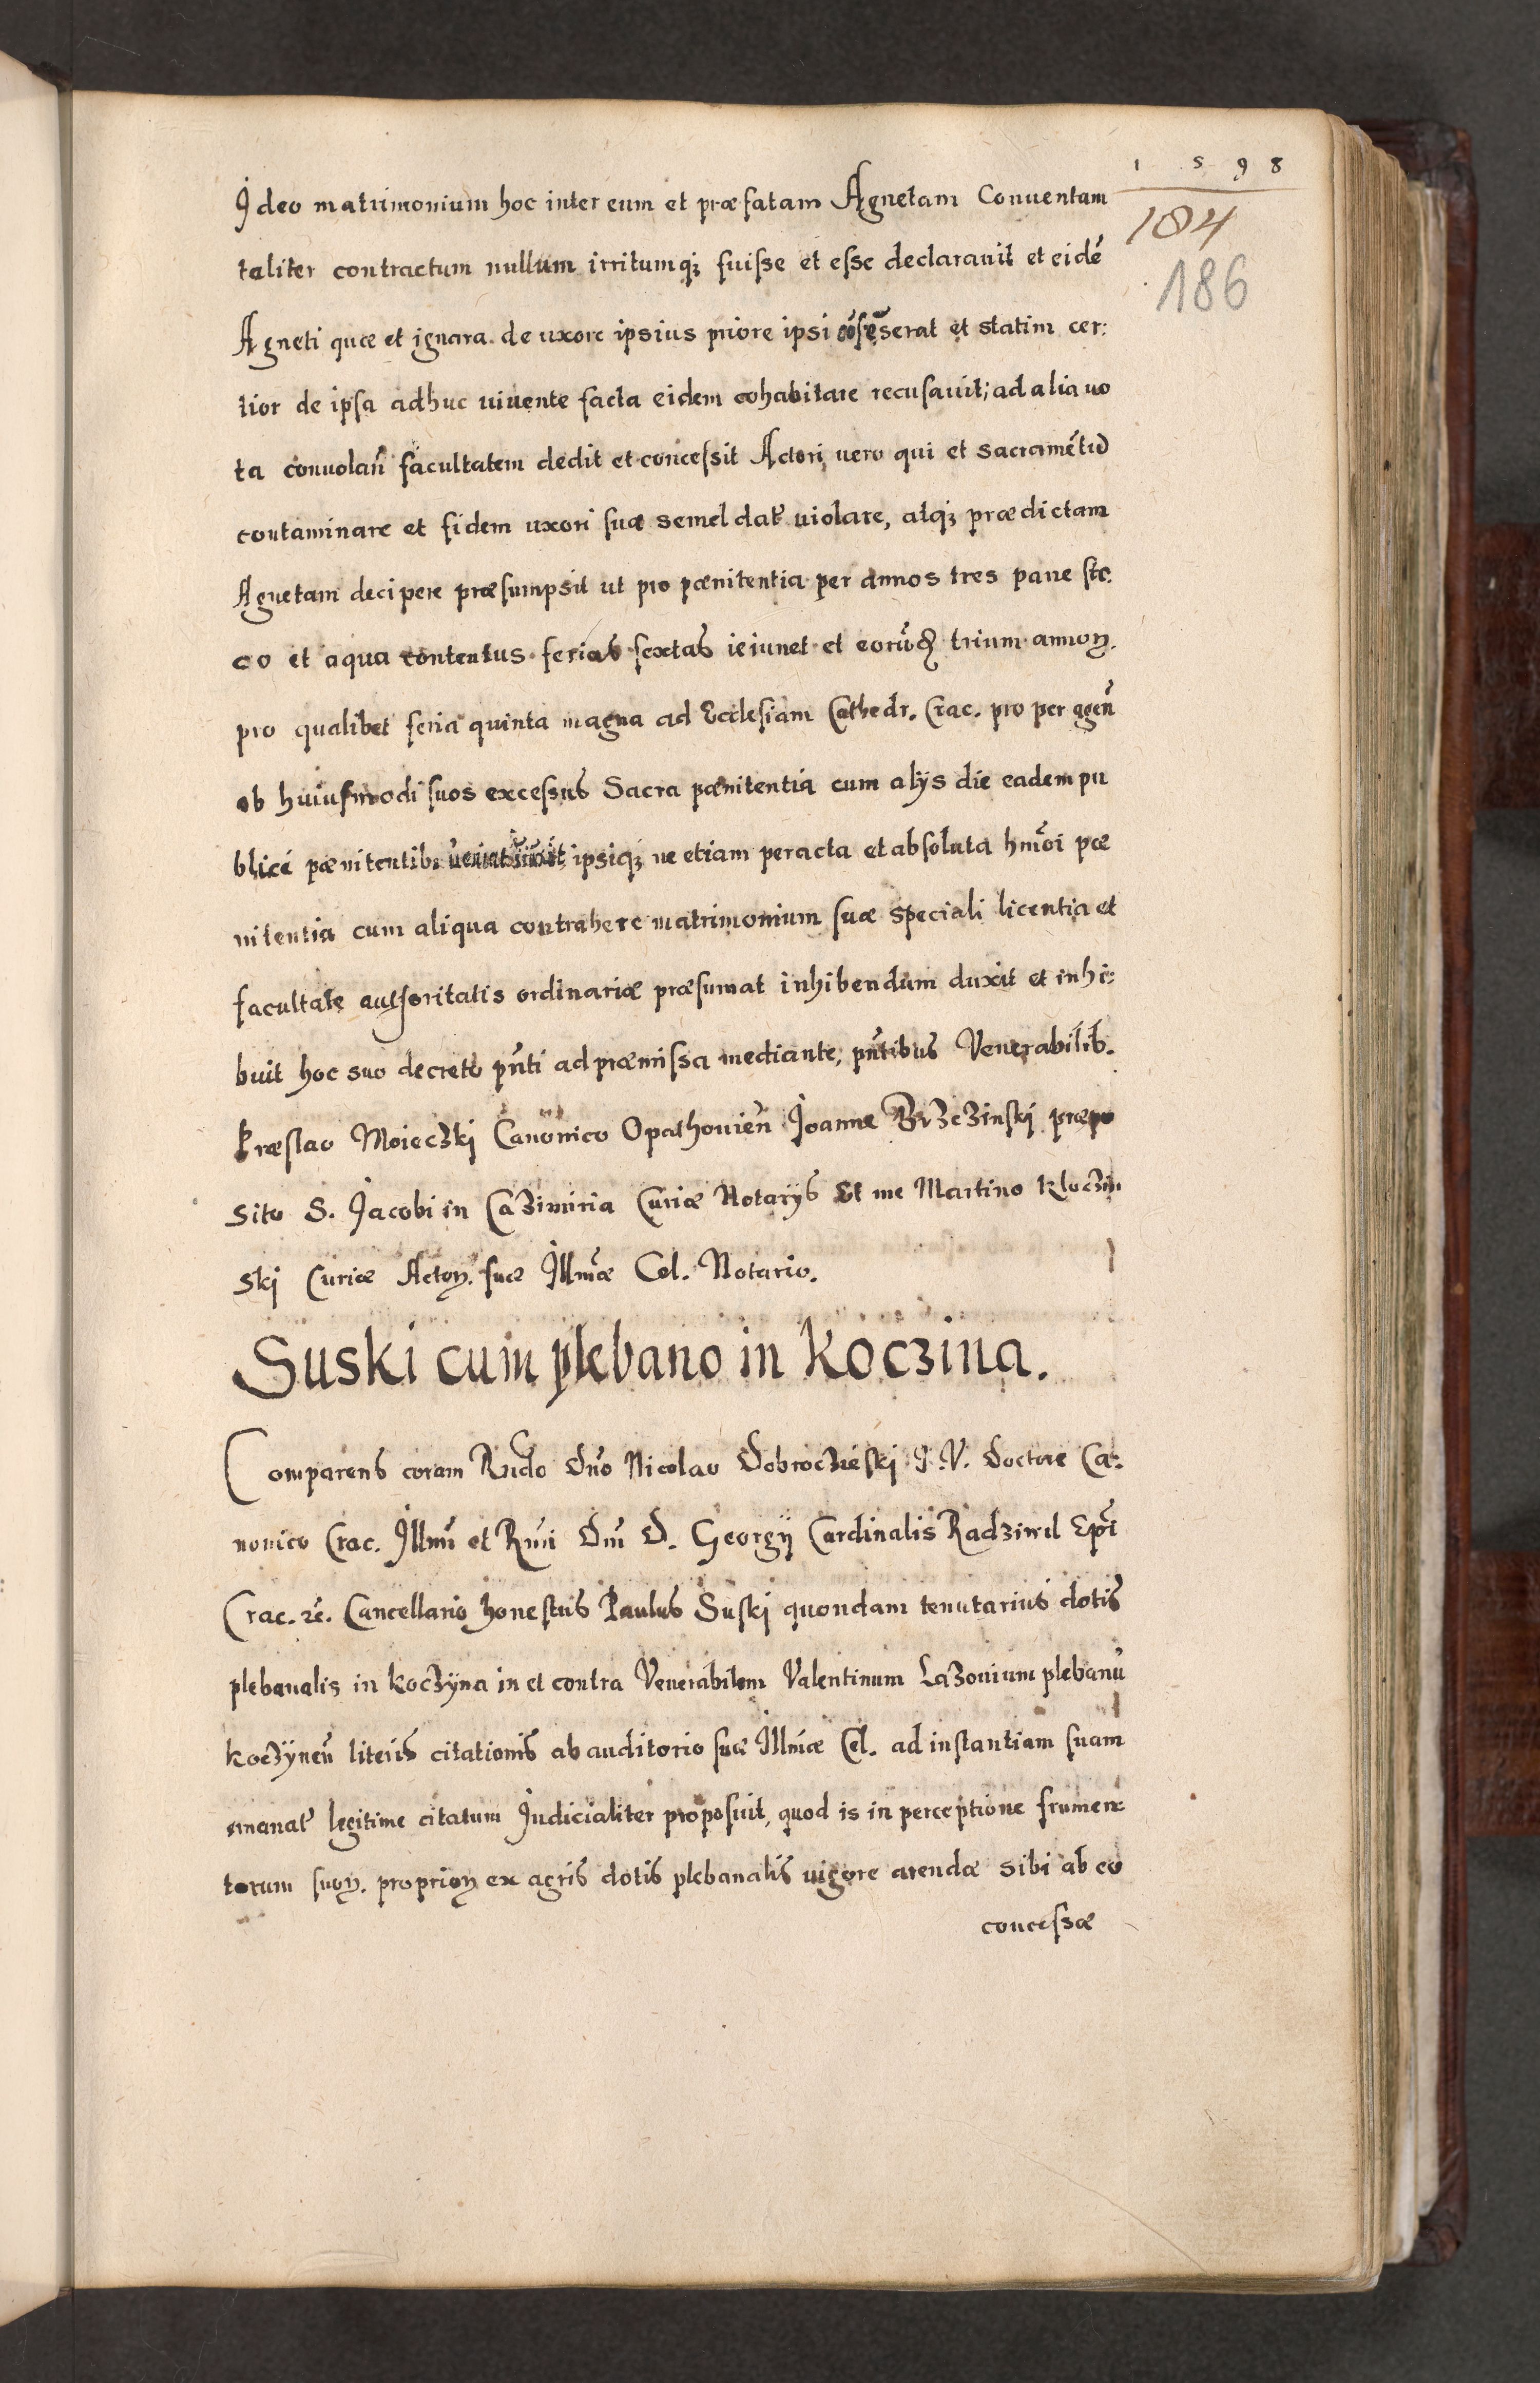 1598
184
186
Ideo matrimonium hoc inter eum et præfatam Agnetam Conuentam
taliter contractum nullum irritumq; fuisse et esse declarauit et eidē
Agneti quæ et ignara de uxore ipsius priore ipsi cōsēserat et statim cer:
tior de ipsa adhuc uiuente facta eidem cohabitare recusauit; ad alia uo
ta conuolan̄ facultatem dedit et concessit Actori uero qui et sacramētū
contaminare et fidem uxori suæ semel dat̄ uiolare, atq; prædictam
Agnetam decipere præsumpsit ut pro pænitentia per annos tres pane sic:
co et aqua contentus ferias sextas ieiunet et eorūdē trium annoꝝ.
pro qualibet feria quinta magna ad Ecclesiam Cathedr. Crac. pro per agen̄
ob huiusmodi suos excessus Sacra pænitentia cum alijs die eadem pu
blicè pænitentib. ipsiq; ne etiam peracta et absoluta hmōi pæ
nitentia cum aliqua contrahere matrimonium suæ speciali licentia et
facultate authoritatis ordinariæ præsumat inhibendum duxit et inhi:
buit hoc suo decreto pn̄ti ad præmissa mediante, pn̄tibus Venerabilib.
Præslao Moieczki Canonico Opathouien̄ Joanne Brzezinski præpo
sito S. Jacobi in Cazimiria Curiæ Notarijs Et me Martino Kloczin
ski Curiæ Actoꝝ. suæ Illmæ Cel. Notario.
Suski cum plebano in Koczina.
Comparens coram Rndo Dno Nicolao Dobroczieski J. V. Doctore Ca:
nonico Crac. Illmi et Rmi Dni D. Georgij Cardinalis Radziwil Epi
Crac. rc. Cancellario honestus Paulus Suski quondam tenutarius dotis
plebanalis in Koczyna in et contra Venerabilem Valentinum Lazouium plebanū
Koczynen̄ literis citationis ab auditorio suæ Illmæ Cel. ad instantiam suam
emanat̄ legitime citatum Judicialiter proposuit, quod is in perceptione frumen:
torum suoꝝ. proprioꝝ ex agris dotis plebanalis uigore arendæ sibi ab eo
concessæ